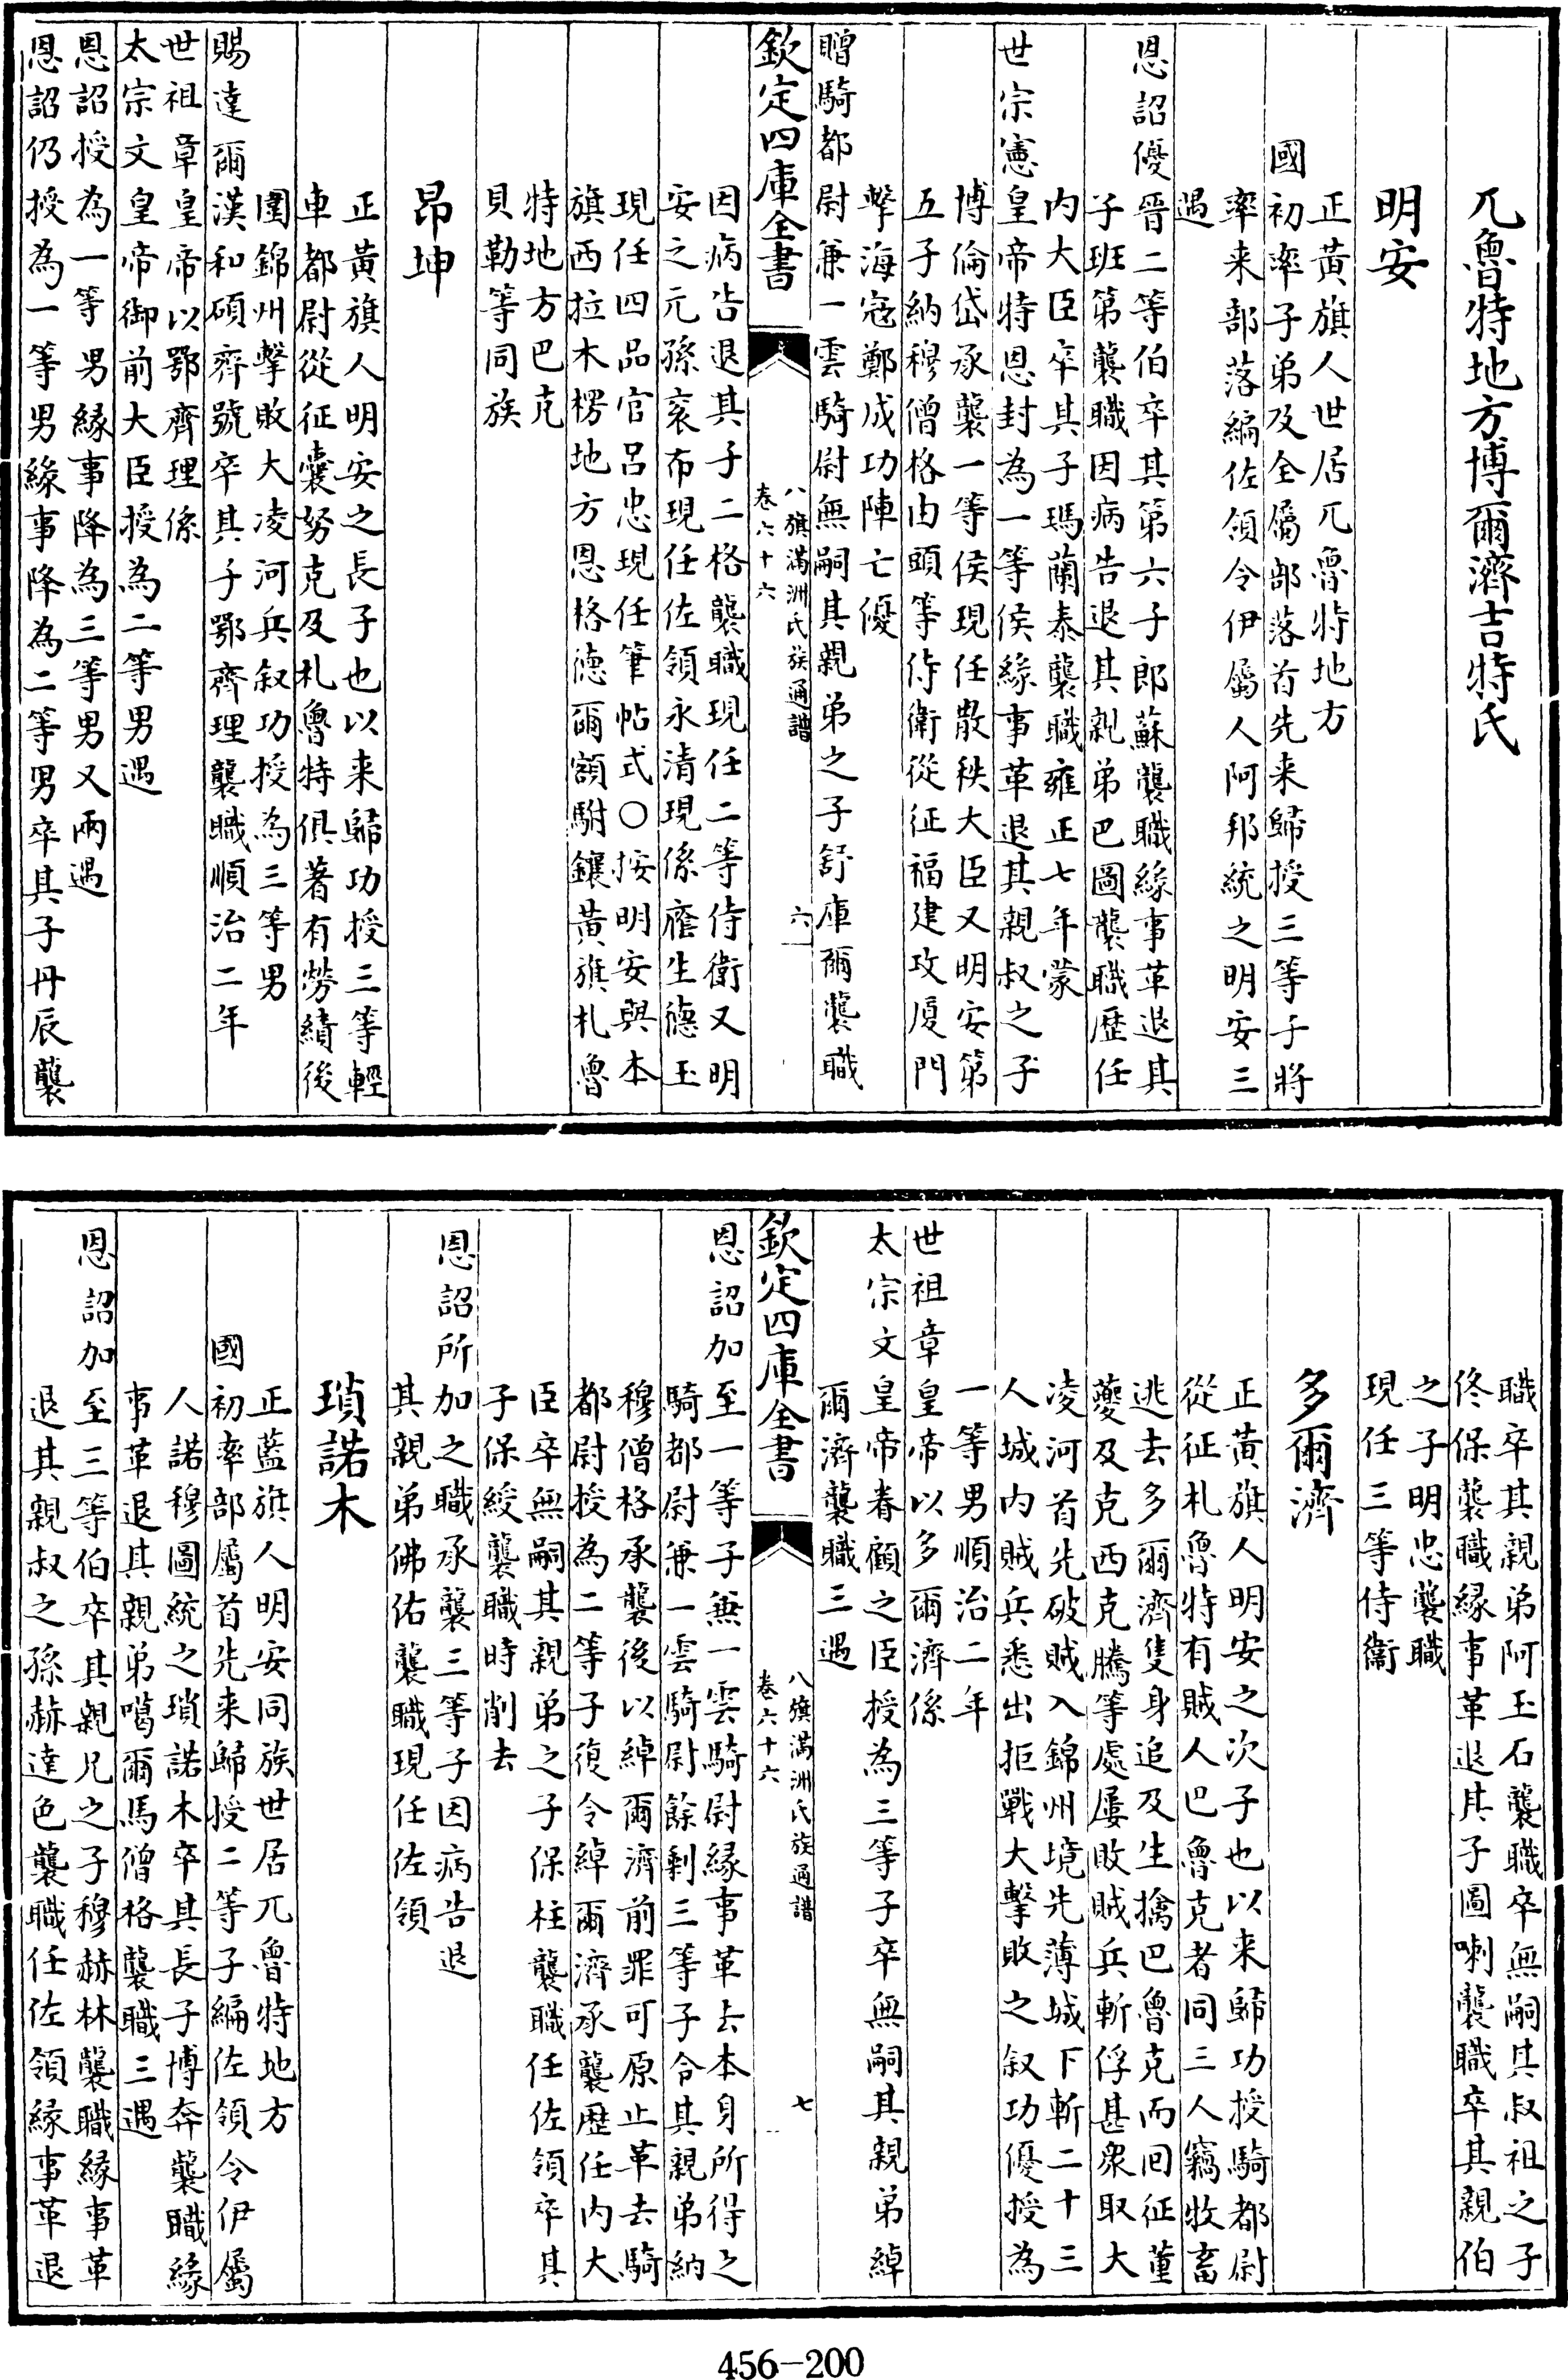 兀魯特地方博爾濟吉特氏
明安
正黃旗人世居兀魯特地方
國初率子弟及全屬部落首先来歸授三等子將
率来部落編佐領令伊屬人阿邦統之明安三
遇
恩詔優晉二等伯卒其第六子郎蘇襲職緣事革退其
子班第襲職因病告退其親弟巴圖襲職歷任
内大臣卒其子瑪蘭泰襲職雍正七年蒙
世宗憲皇帝特恩封為一等侯緣事革退其親叔之子
博倫岱承襲一等侯現任散秩大臣又明安第
五子納穆僧格由頭等侍衛從征福建攻厦門
擊海寇鄭成功陣亡優
贈騎都尉兼一雲騎尉無嗣其親弟之子舒庫爾襲職
欽定四庫全書
八旗滿洲氏族通譜
卷六十六
六
因病告退其子二格襲職現任二等侍衛又明
安之元孫衮布現任佐領永清現係廕生德玉
現任四品官呂忠現任筆帖式○按明安與本
旗西拉木楞地方恩格德爾額駙鑲黃旗札魯
特地方巴克
貝勒等同族
昂坤
正黃旗人明安之長子也以来歸功授三等輕
車都尉從征囊努克及札魯特俱著有勞績後
圍錦州擊敗大凌河兵叙功授為三等男
賜達爾漢和碩齊號卒其子鄂齊理襲職順治二年
世祖章皇帝以鄂齊理係
太宗文皇帝御前大臣授為二等男遇
恩詔授為一等男緣事降為三等男又兩遇
恩詔仍授為一等男緣事降為二等男卒其子丹辰襲
職卒其親弟阿玉石襲職卒無嗣其叔祖之子
佟保襲職緣事革退其子圖喇襲職卒其親伯
之子明忠襲職
現任三等侍衛
多爾濟
正黃旗人明安之次子也以来歸功授騎都尉
從征札魯特有賊人巴魯克者同三人竊牧畜
逃去多爾濟隻身追及生擒巴魯克而回征董
夔及克西克騰等處屢敗賊兵斬俘甚衆取大
凌河首先破賊入錦州境先薄城下斬二十三
人城内賊兵悉出拒戰大擊敗之叙功優授為
一等男順治二年
世祖章皇帝以多爾濟係
太宗文皇帝眷顧之臣授為三等子卒無嗣其親弟綽
爾濟襲職三遇
欽定四庫全書
八旗滿洲氏族通譜
卷六十六
七
恩詔加至一等子兼一雲騎尉緣事革去本身所得之
騎都尉兼一雲騎尉餘剩三等子令其親弟納
穆僧格承襲後以綽爾濟前罪可原止革去騎
都尉授為二等子復令綽爾濟承襲歷任内大
臣卒無嗣其親弟之子保柱襲職任佐領卒其
子保綬襲職時削去
恩詔所加之職承襲三等子因病告退
其親弟佛佑襲職現任佐領
瑣諾木
正藍旗人明安同族世居兀魯特地方
國初率部屬首先来歸授二等子編佐領令伊屬
人諾穆圖統之瑣諾木卒其長子博奔襲職緣
事革退其親弟噶爾馬僧格襲職三遇
恩詔加至三等伯卒其親兄之子穆赫林襲職緣事革
退其親叔之孫赫達色襲職任佐領緣事革退
456-200